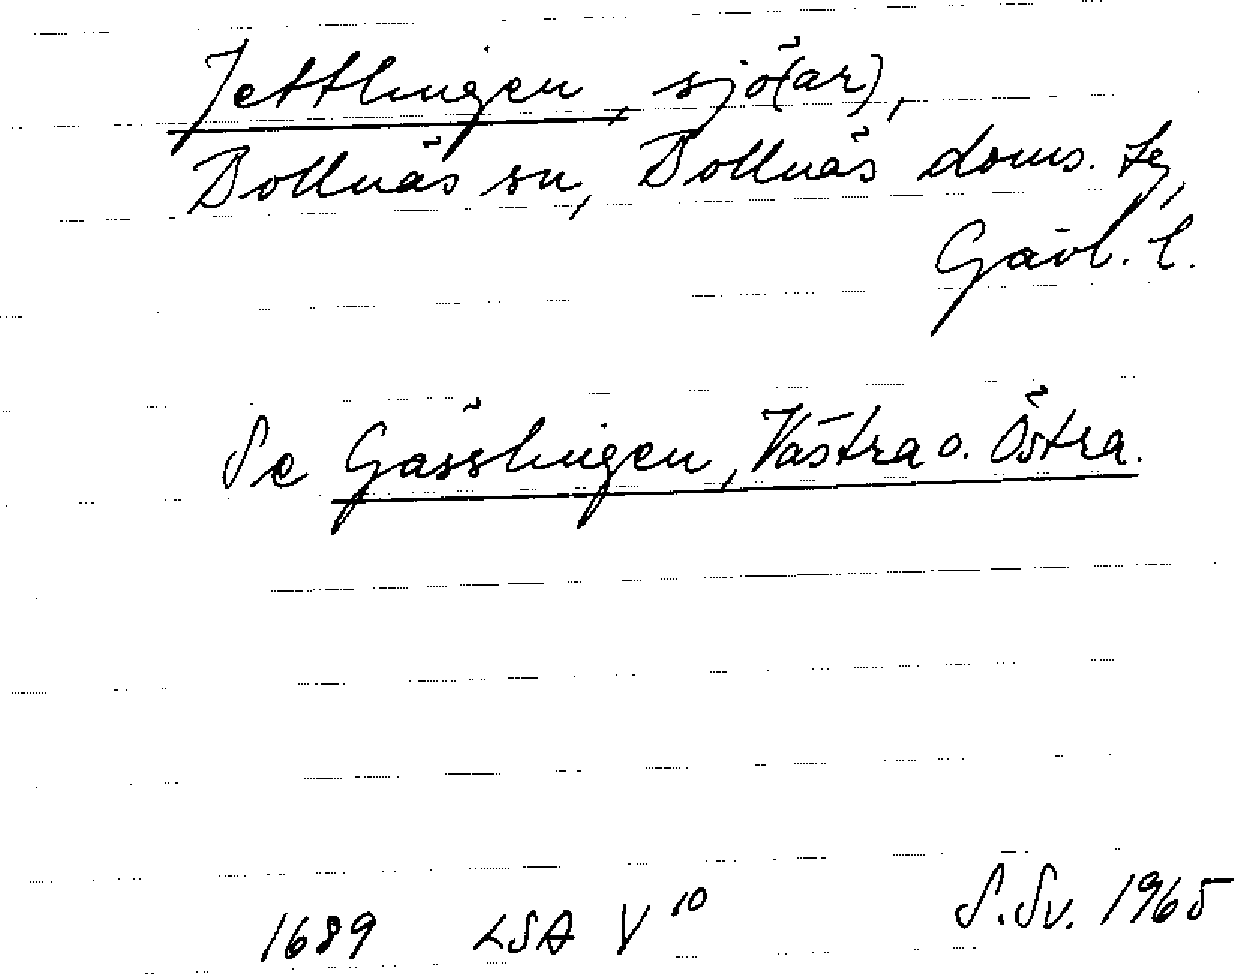 Jettlingen, sjö(ar),
Bollnäs sn, Bollnäs doms. tg,
Gävl. l.
Se Gässlingen, Västra o. Östra.
1689 LSA V 10 S.Sv. 1965